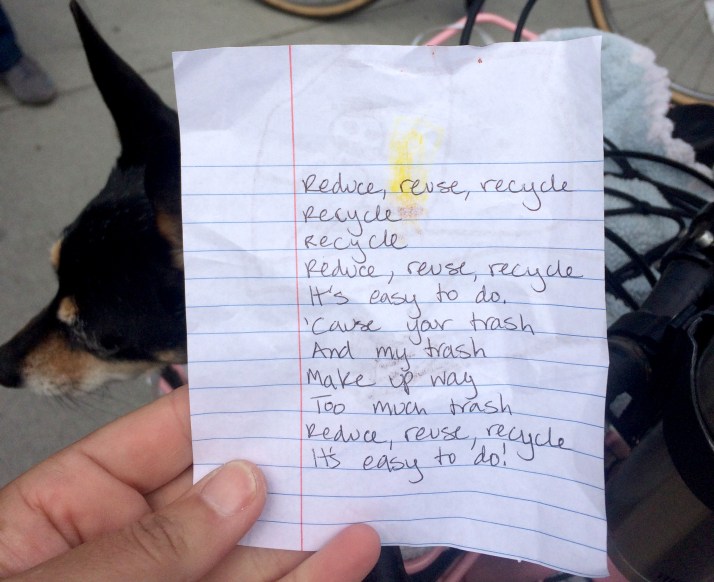 Reduce, reuse, recycle
Recycle
Recycle
Reduce, reuse, recycle
It's easy to do.
'Cause your trash
And my trash
Make up way
Too much trash
Reduce, reuse, recycle
It's easy to do!